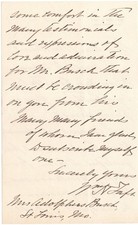 some comfort in the
many testimonials
and expressions of
love and devotion
for Mr. Busch that
must be crowding in
on you from his
many many friends
of whom I am glad
to subscribe myself
one—
Sincerely yours
Wm H Taft
Mrs Adolphus Busch
St Louis, Mo.